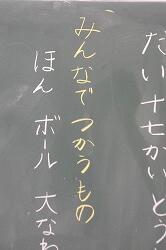 だい十七かい とう
みんなで つかうもの
ほん ボール 大なわ